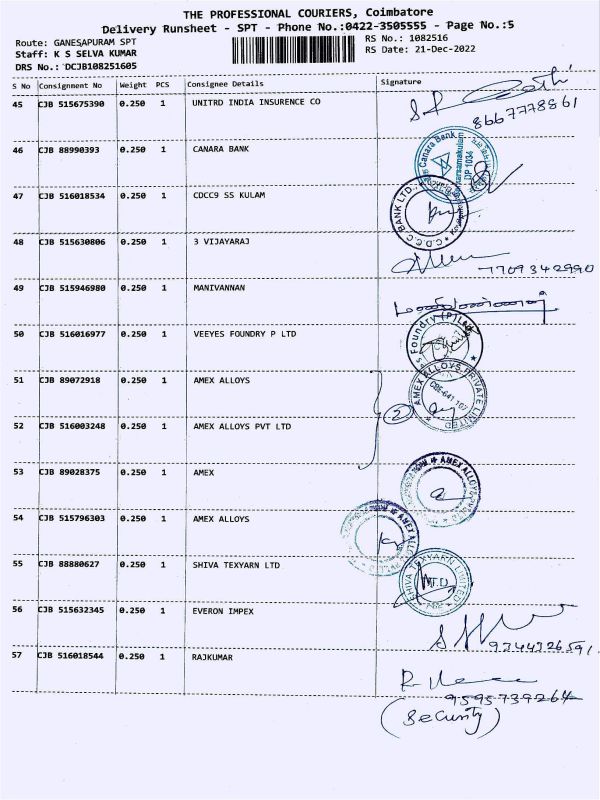 THE PROFESSIONAL COURIERS, Coimbatore
Delivery Runsheet - SPT - Phone No.:0422-3505555 - Page No.:5
Route: GANESAPURAM SPT
RS No.: 1082516
Staff: K S SELVA KUMAR
RS Date: 21-Dec-2022
DRS No.: DCJB108251605
S No Consignment No Weight PCS Consignee Details Signature
45 CJB 515675390 0.250 1 UNITRD INDIA INSURENCE CO
8667778861
46 CJB 88990393 0.250 1 CANARA BANK
Canara Bank
DP 1034
47 CJB 516018534 0.250 1 CDCC9 SS KULAM
C.D.C.C. BANK LTD.,
48 CJB 515630806 0.250 1 3 VIJAYARAJ
7709342990
49 CJB 515946980 0.250 1 MANIVANNAN
50 CJB 516016977 0.250 1 VEEYES FOUNDRY P LTD
s Foundry (P) Ltd
51 CJB 89072918 0.250 1 AMEX ALLOYS
AMEX ALLOYS PRIVATE LIMITED
CBE-641 107
2
52 CJB 516003248 0.250 1 AMEX ALLOYS PVT LTD
53 CJB 89028375 0.250 1 AMEX
AMEX ALLOY
54 CJB 515796303 0.250 1 AMEX ALLOYS
AMEX ALLO
55 CJB 88880627 0.250 1 SHIVA TEXYARN LTD
SHIVA TEXYARN LIMITED
56 CJB 515632345 0.250 1 EVERON IMPEX
9744726591
57 CJB 516018544 0.250 1 RAJKUMAR
9595739264
(Security)